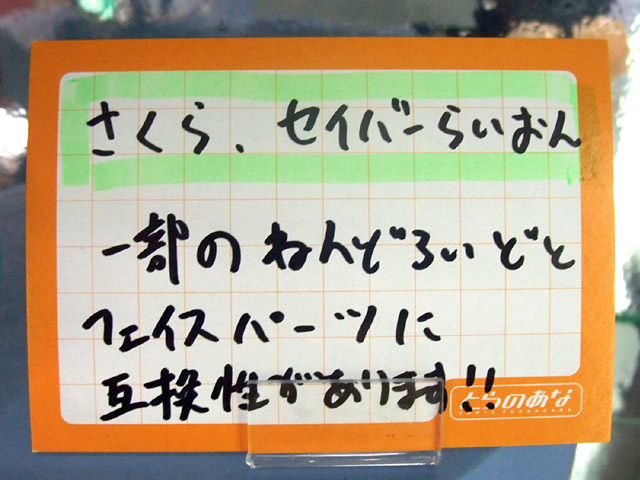 さくら、セイバーらいおん
一部のねんどろいどと
フェイスパーツに
互換性があります!!
とらのあな
COMIC TORANOANA